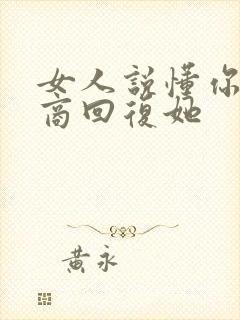 女人說懂你
商回復她
黃永